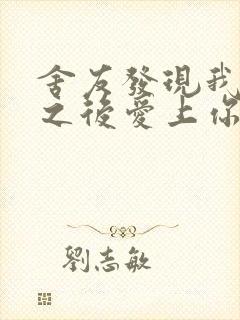 舍友發現我
之後愛上你
劉志敏